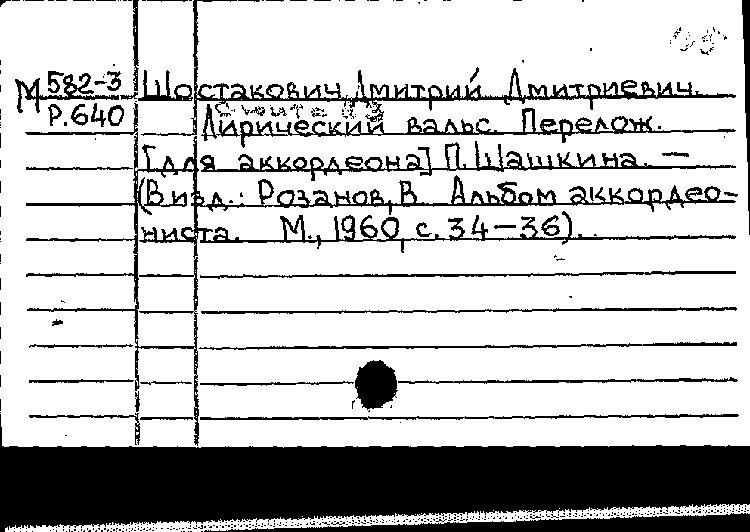 М 582-3 Шостакович Дмитрий Дмитриевич.
Р.640
Сюита №3
Лирический вальс. Перелож.
[для аккордеона] П. Шашкина. —
(В изд.: Розанов, В. Альбом аккордео-
ниста. М., 1960, с. 34–36).